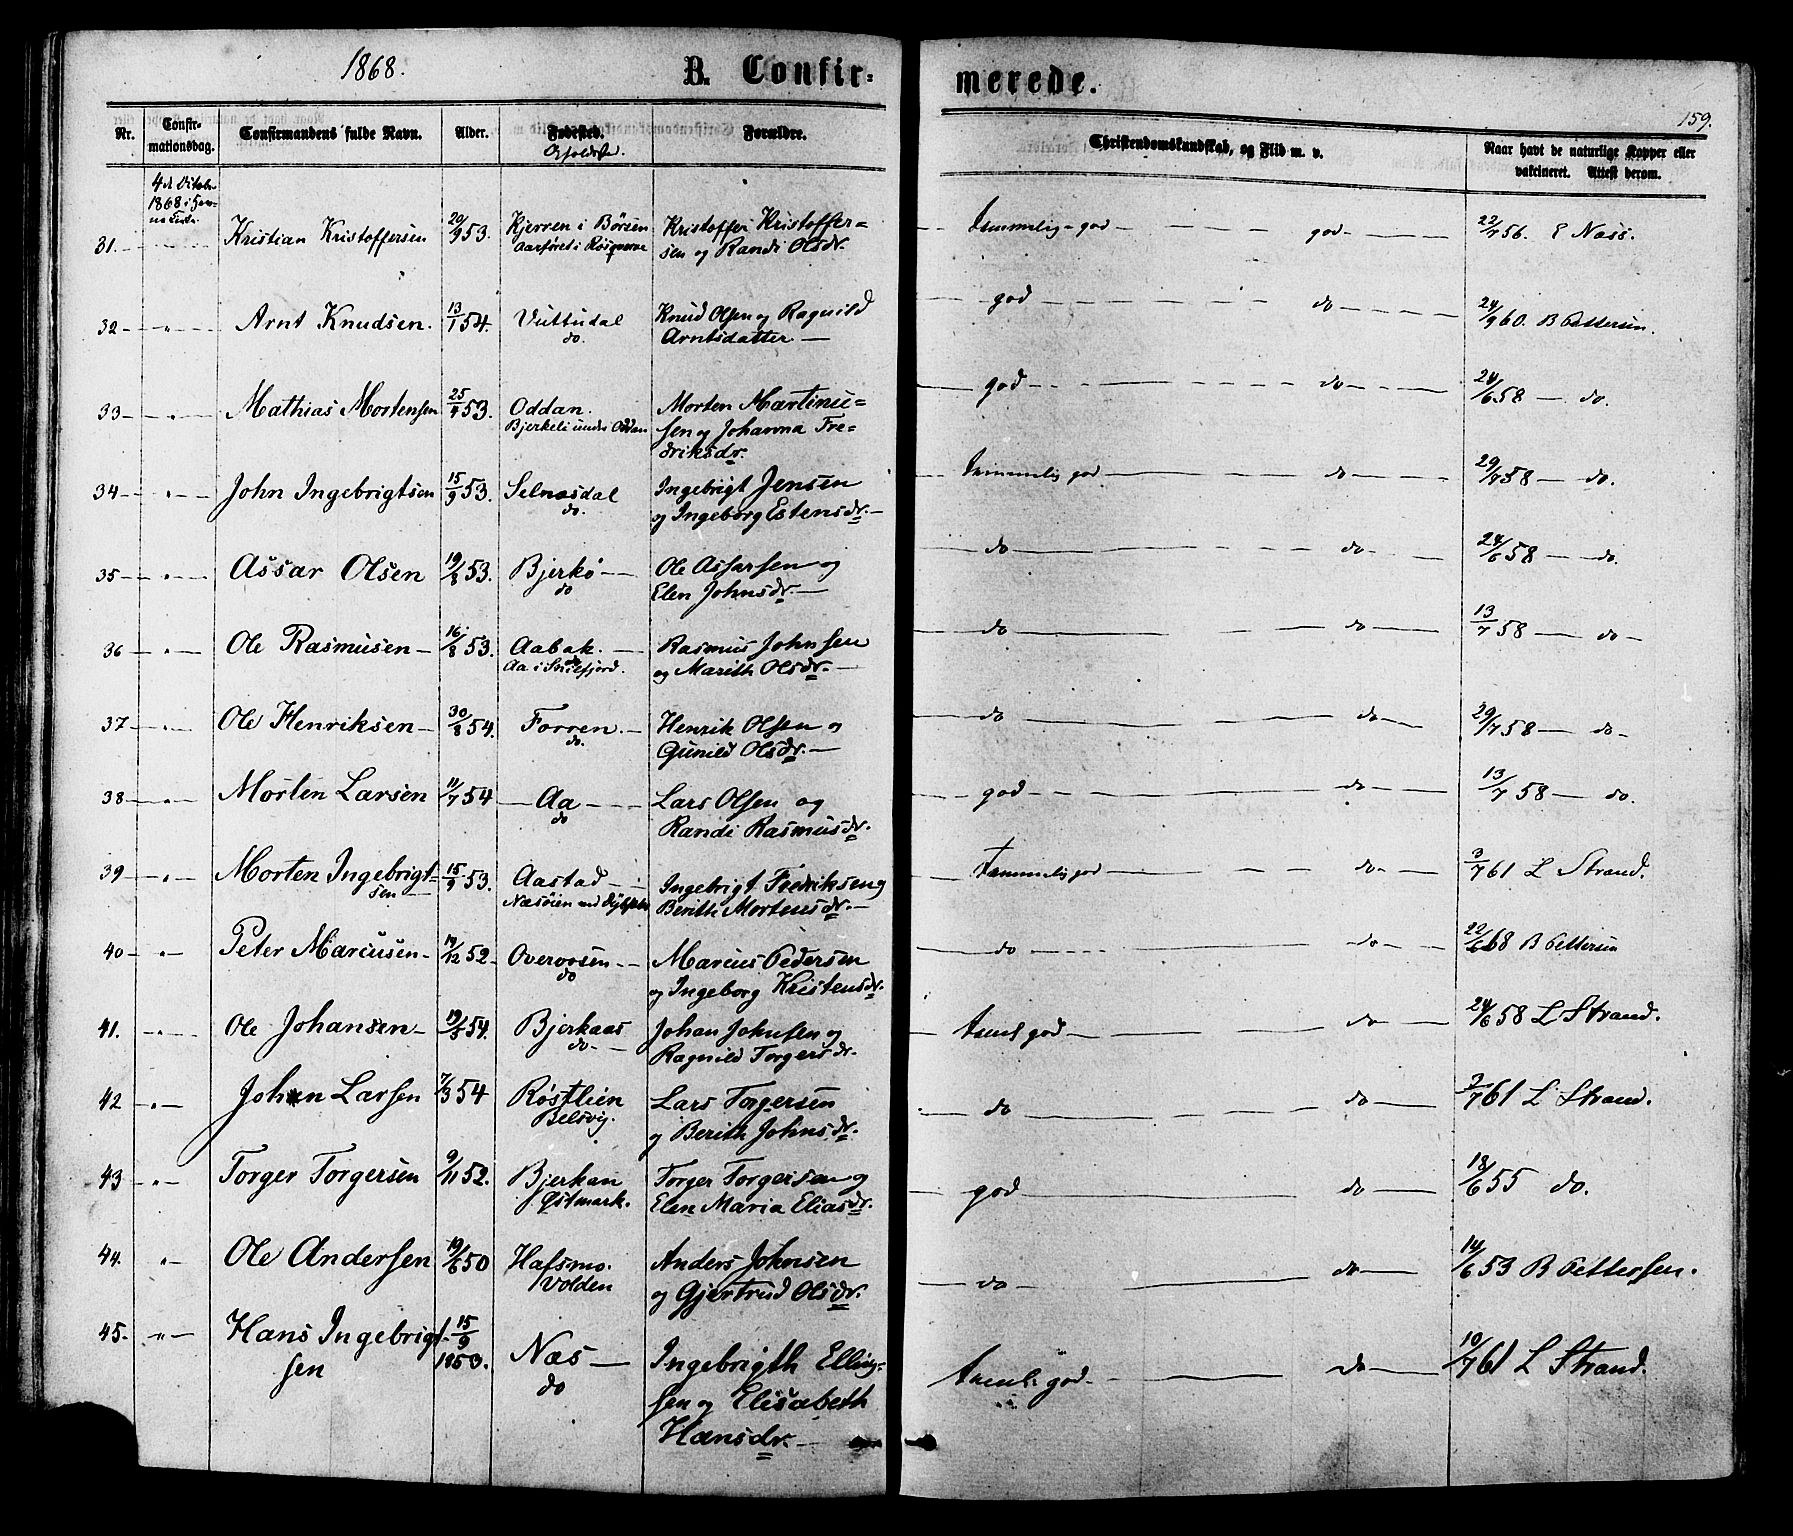 1868.
B. Confirmerede.
159.
Nr. Confirmationsdag. Confirmandens fulde Navn. Alder. Fødested. Forældre. Christendomskundskab, og Flid m. v. Naar havt de naturlige Kopper eller
vakcineret. Attest derom.
31. Kristian Kristoffersen 20/9 53. Kjerren i Børsen Kristoffer Kristoffer- temmelig god god 22/7 56. E Næss.
sen og Randi Olsdr.
32 " Arnt Knudsen. 13/1 54. Vuttudal Knud Olsen og Ragnild god do 24/9 60. B Pettersen.
do. Arntsdatter
33 " Mathias Mortensen 25/4 53. Oddan. Morten Martinu- god do 24/6 58 do.
Bjerkeli under Oddan sen og Johanna Fre-
driksdr.
34 " John Ingebrigtsen 15/9 53. Selnæsdal Ingebrigt Jensen temmelig god. do 29/7 58 do.
do. og Ingeborg Estensdr.
35 " Assar Olsen 19/8 53. Bjerkø Ole Assarsen og do do 24/6 58 do.
do Elen Johnsdr.
36 " Ole Rasmusen 16/8 53. Aabak. Rasmus Johnsen do do 13/7 58 do
Aa i Snilfjord. og Marith Olsdr.
37 " Ole Henriksen 30/8 54. Forren. Henrik Olsen og do do 29/7 58 do
do. Gunild Olsdr.
38 " Morten Larsen 11/7 54 Aa Lars Olsen og god do 13/7 58 do.
do Randi Rasmusdr.
39 " Morten Ingebrigt- 15/9 53. Aastad Ingebrigt Fredriksen og temmelig god do 3/7 61 L Strand.
sen Næsøien Berith Mortensdr.
40 " Peter Marcusen 14/12 52 Overvosen Marcus Pedersen do do 22/6 68 B Pettersen
do og Ingeborg Kristensdr.
41. " Ole Johansen 19/5 54. Bjerkaas Johan Johnsen og teml god do 24/6 58 L Strand.
do Ragnild Torgersdr.
42 " Johan Larsen 7/3 54 Røstlien Lars Torgersen do do 2/7 61 L Strand.
Belsvig. og Berith Johnsdr.
43 " Torger Torgersen 9/11 52. Bjerkan Torger Torgersen og god do 18/6 55 do.
Østmark. Elen Maria Eliasdr.
44. " Ole Andersen 19/6 50 Hafsmo. Anders Johnsen do do 14/6 53 B Pettersen.
Volden og Gjertrud Olsdr.
45. " Hans Ingebrigt- 15/9 Næs Ingebrigth Elling- teml. god do 10/7 61 L Strand.
sen 1853. do sen og Elisabeth
Hansdr.